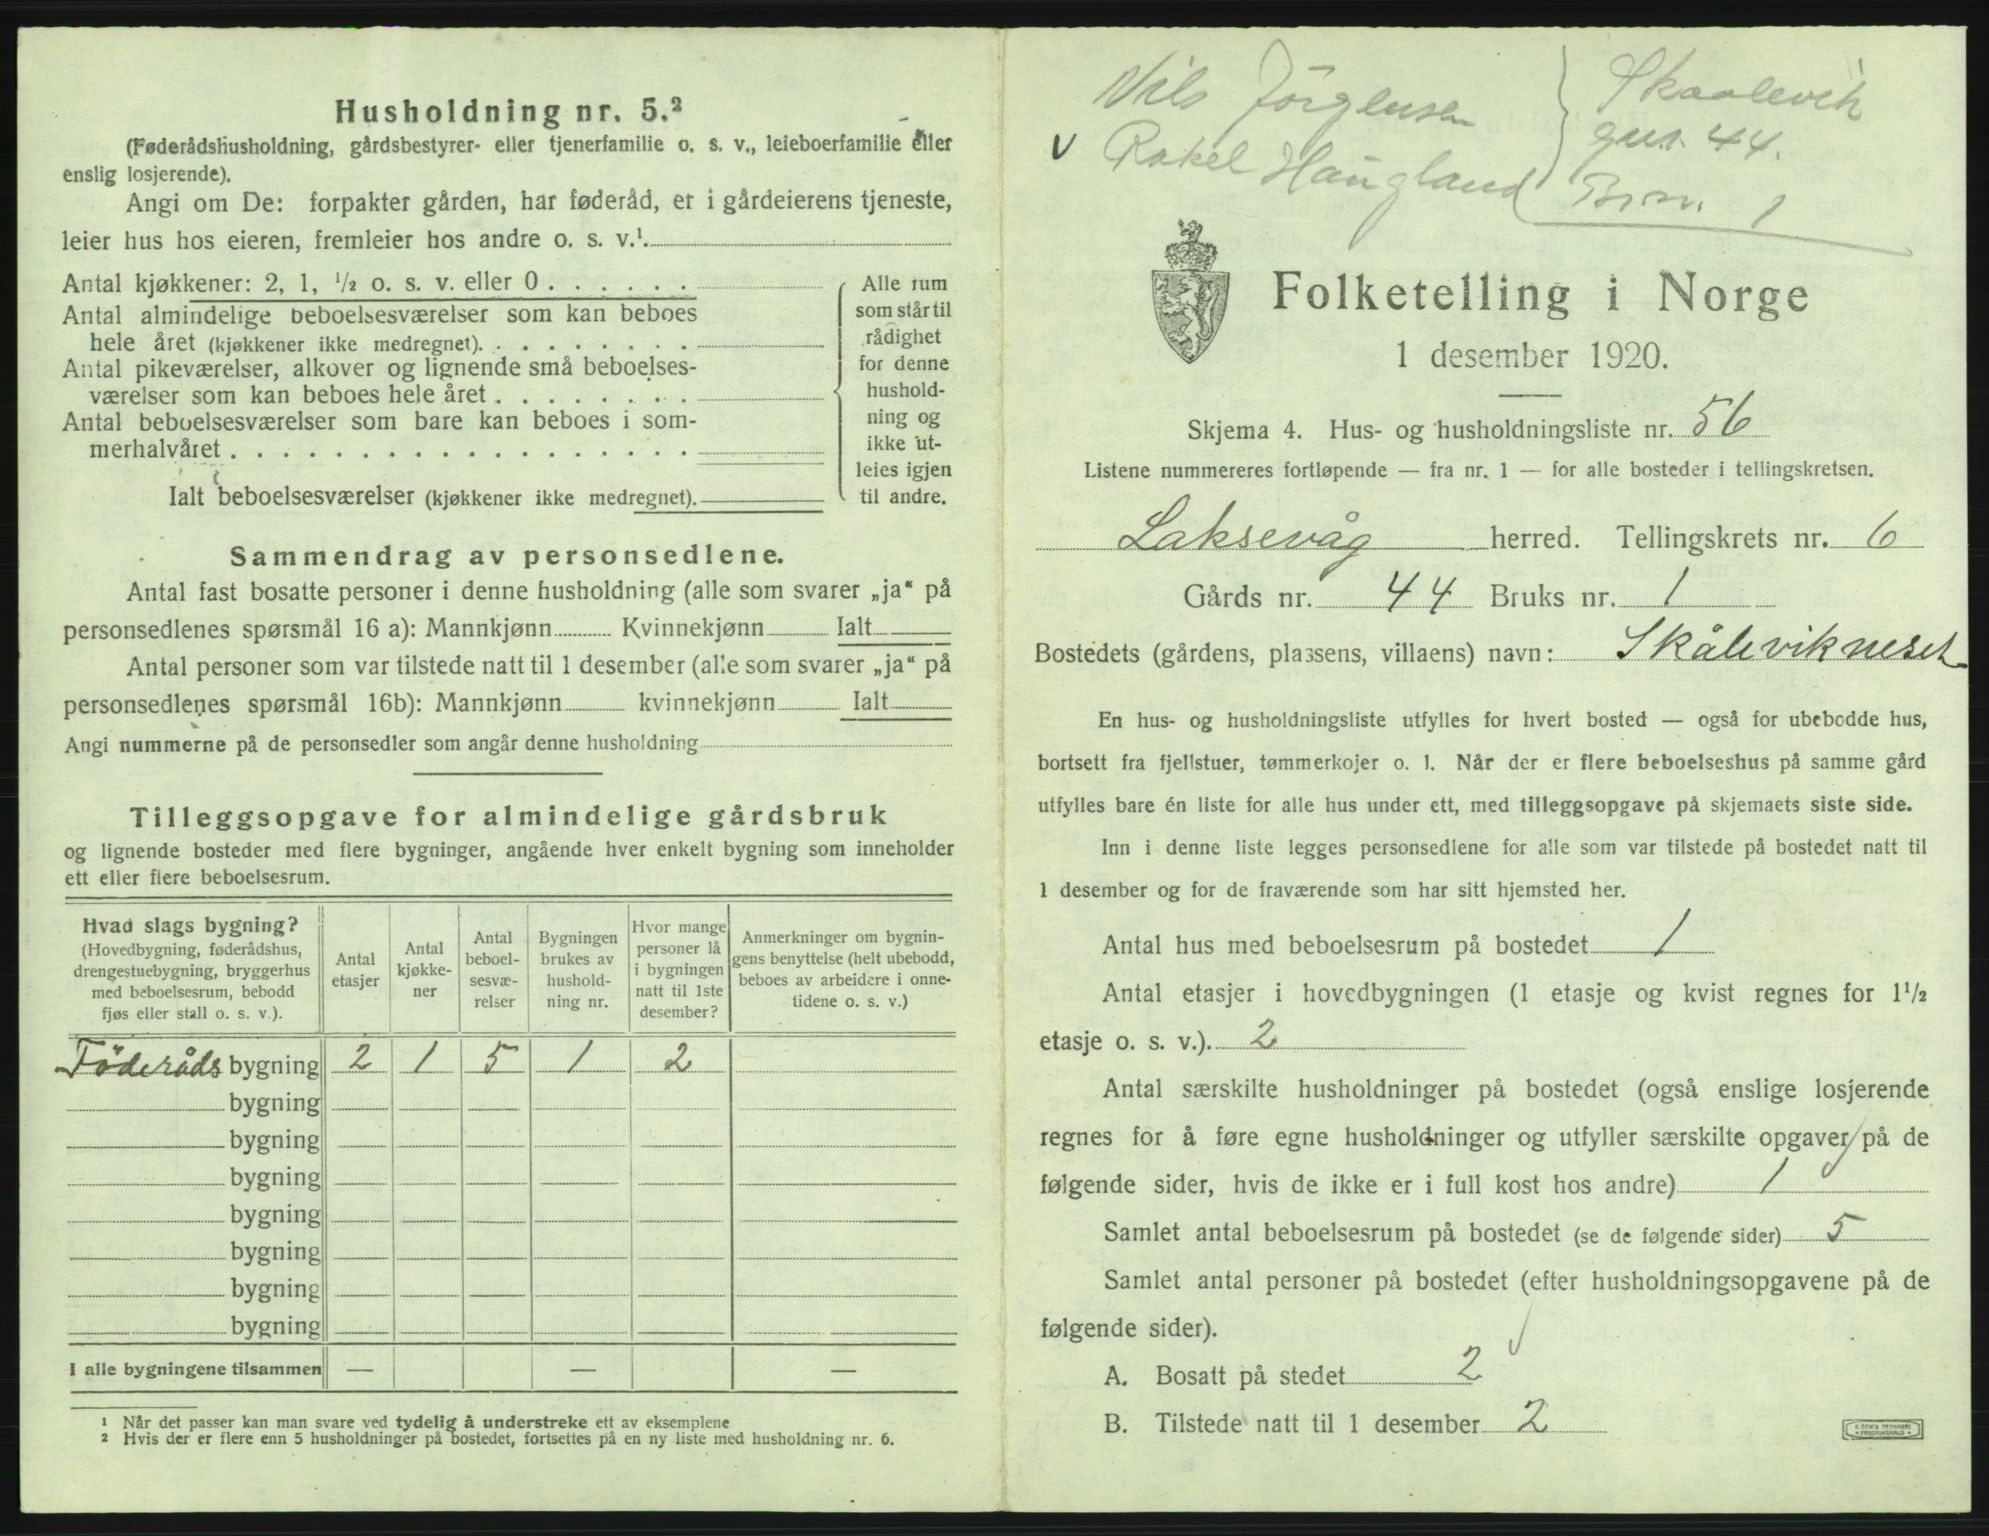 Husholdning nr. 5.²
(Føderådshusholdning, gårdsbestyrer- eller tjenerfamilie o. s. v., leieboerfamilie eller
enslig losjerende).
Angi om De: forpakter gården, har føderåd, er i gårdeierens tjeneste,
leier hus hos eieren, fremleier hos andre o. s. v.¹.
Antal kjøkkener: 2, 1, ½ o. s. v. eller 0 . . . . . .
Antal almindelige beboelsesværelser som kan beboes
hele året (kjøkkener ikke medregnet). . . . . . . . .
Antal pikeværelser, alkover og lignende små beboelses-
værelser som kan beboes hele året . . . . . . . .
Antal beboelsesværelser som bare kan beboes i som-
merhalvåret . . . . . . . . . . . . . . . . . .
Ialt beboelsesværelser (kjøkkener ikke medregnet).
Alle rum
som står til
rådighet
for denne
hushold-
ning og
ikke ut-
leies igjen
til andre.
Sammendrag av personsedlene.
Antal fast bosatte personer i denne husholdning (alle som svarer „ja“ på
personsedlenes spørsmål 16 a): Mannkjønn Kvinnekjønn Ialt
Antal personer som var tilstede natt til 1 desember (alle som svarer „ja“ på
personsedlenes spørsmål 16b): Mannkjønn kvinnekjønn Ialt
Angi nummerne på de personsedler som angår denne husholdning
Tilleggsopgave for almindelige gårdsbruk
og lignende bosteder med flere bygninger, angående hver enkelt bygning som inneholder
ett eller flere beboelsesrum.
Hvad slags bygning?
(Hovedbygning, føderådshus,
drengestuebygning, bryggerhus
med beboelsesrum, bebodd
fjøs eller stall o. s. v.).
Antal
etasjer
Antal
kjøkke-
ner
Antal
beboel-
sesvæ-
relser
Bygningen
brukes av
hushold-
ning nr.
Hvor mange
personer lå
i bygningen
natt til 1ste
desember?
Anmerkninger om bygnin-
gens benyttelse (helt ubebodd,
beboes av arbeidere i onne-
tidene o. s. v.)
Föderåds bygning 2 1 5 1 2
bygning
bygning
bygning
bygning
bygning
bygning
bygning
I alle bygningene tilsammen — — —
¹ Når det passer kan man svare ved tydelig å understreke ett av eksemplene
² Hvis der er flere enn 5 husholdninger på bostedet, fortsettes på en ny liste med husholdning nr. 6.
Nils Jörgensen
v Rakel Haugland
Skaalevik
gnr. 44.
Brn. 1
Folketelling i Norge
1 desember 1920.
Skjema 4. Hus- og husholdningsliste nr. 56
Listene nummereres fortløpende — fra nr. 1 — for alle bosteder i tellingskretsen.
Laksevåg herred. Tellingskrets nr. 6
Gårds nr. 44 Bruks nr. 1
Bostedets (gårdens, plassens, villaens) navn: Skålevikneset
En hus- og husholdningsliste utfylles for hvert bosted — også for ubebodde hus,
bortsett fra fjellstuer, tømmerkojer o. l. Når der er flere beboelseshus på samme gård
utfylles bare én liste for alle hus under ett, med tilleggsopgave på skjemaets siste side.
Inn i denne liste legges personsedlene for alle som var tilstede på bostedet natt til
1 desember og for de fraværende som har sitt hjemsted her.
Antal hus med beboelsesrum på bostedet 1
Antal etasjer i hovedbygningen (1 etasje og kvist regnes for 1½
etasje o. s. v.). 2
Antal særskilte husholdninger på bostedet (også enslige losjerende
regnes for å føre egne husholdninger og utfyller særskilte opgaver på de
følgende sider, hvis de ikke er i full kost hos andre) 1
Samlet antal beboelsesrum på bostedet (se de følgende sider) 5
Samlet antal personer på bostedet (efter husholdningsopgavene på de
følgende sider).
A. Bosatt på stedet 2
B. Tilstede natt til 1 desember 2